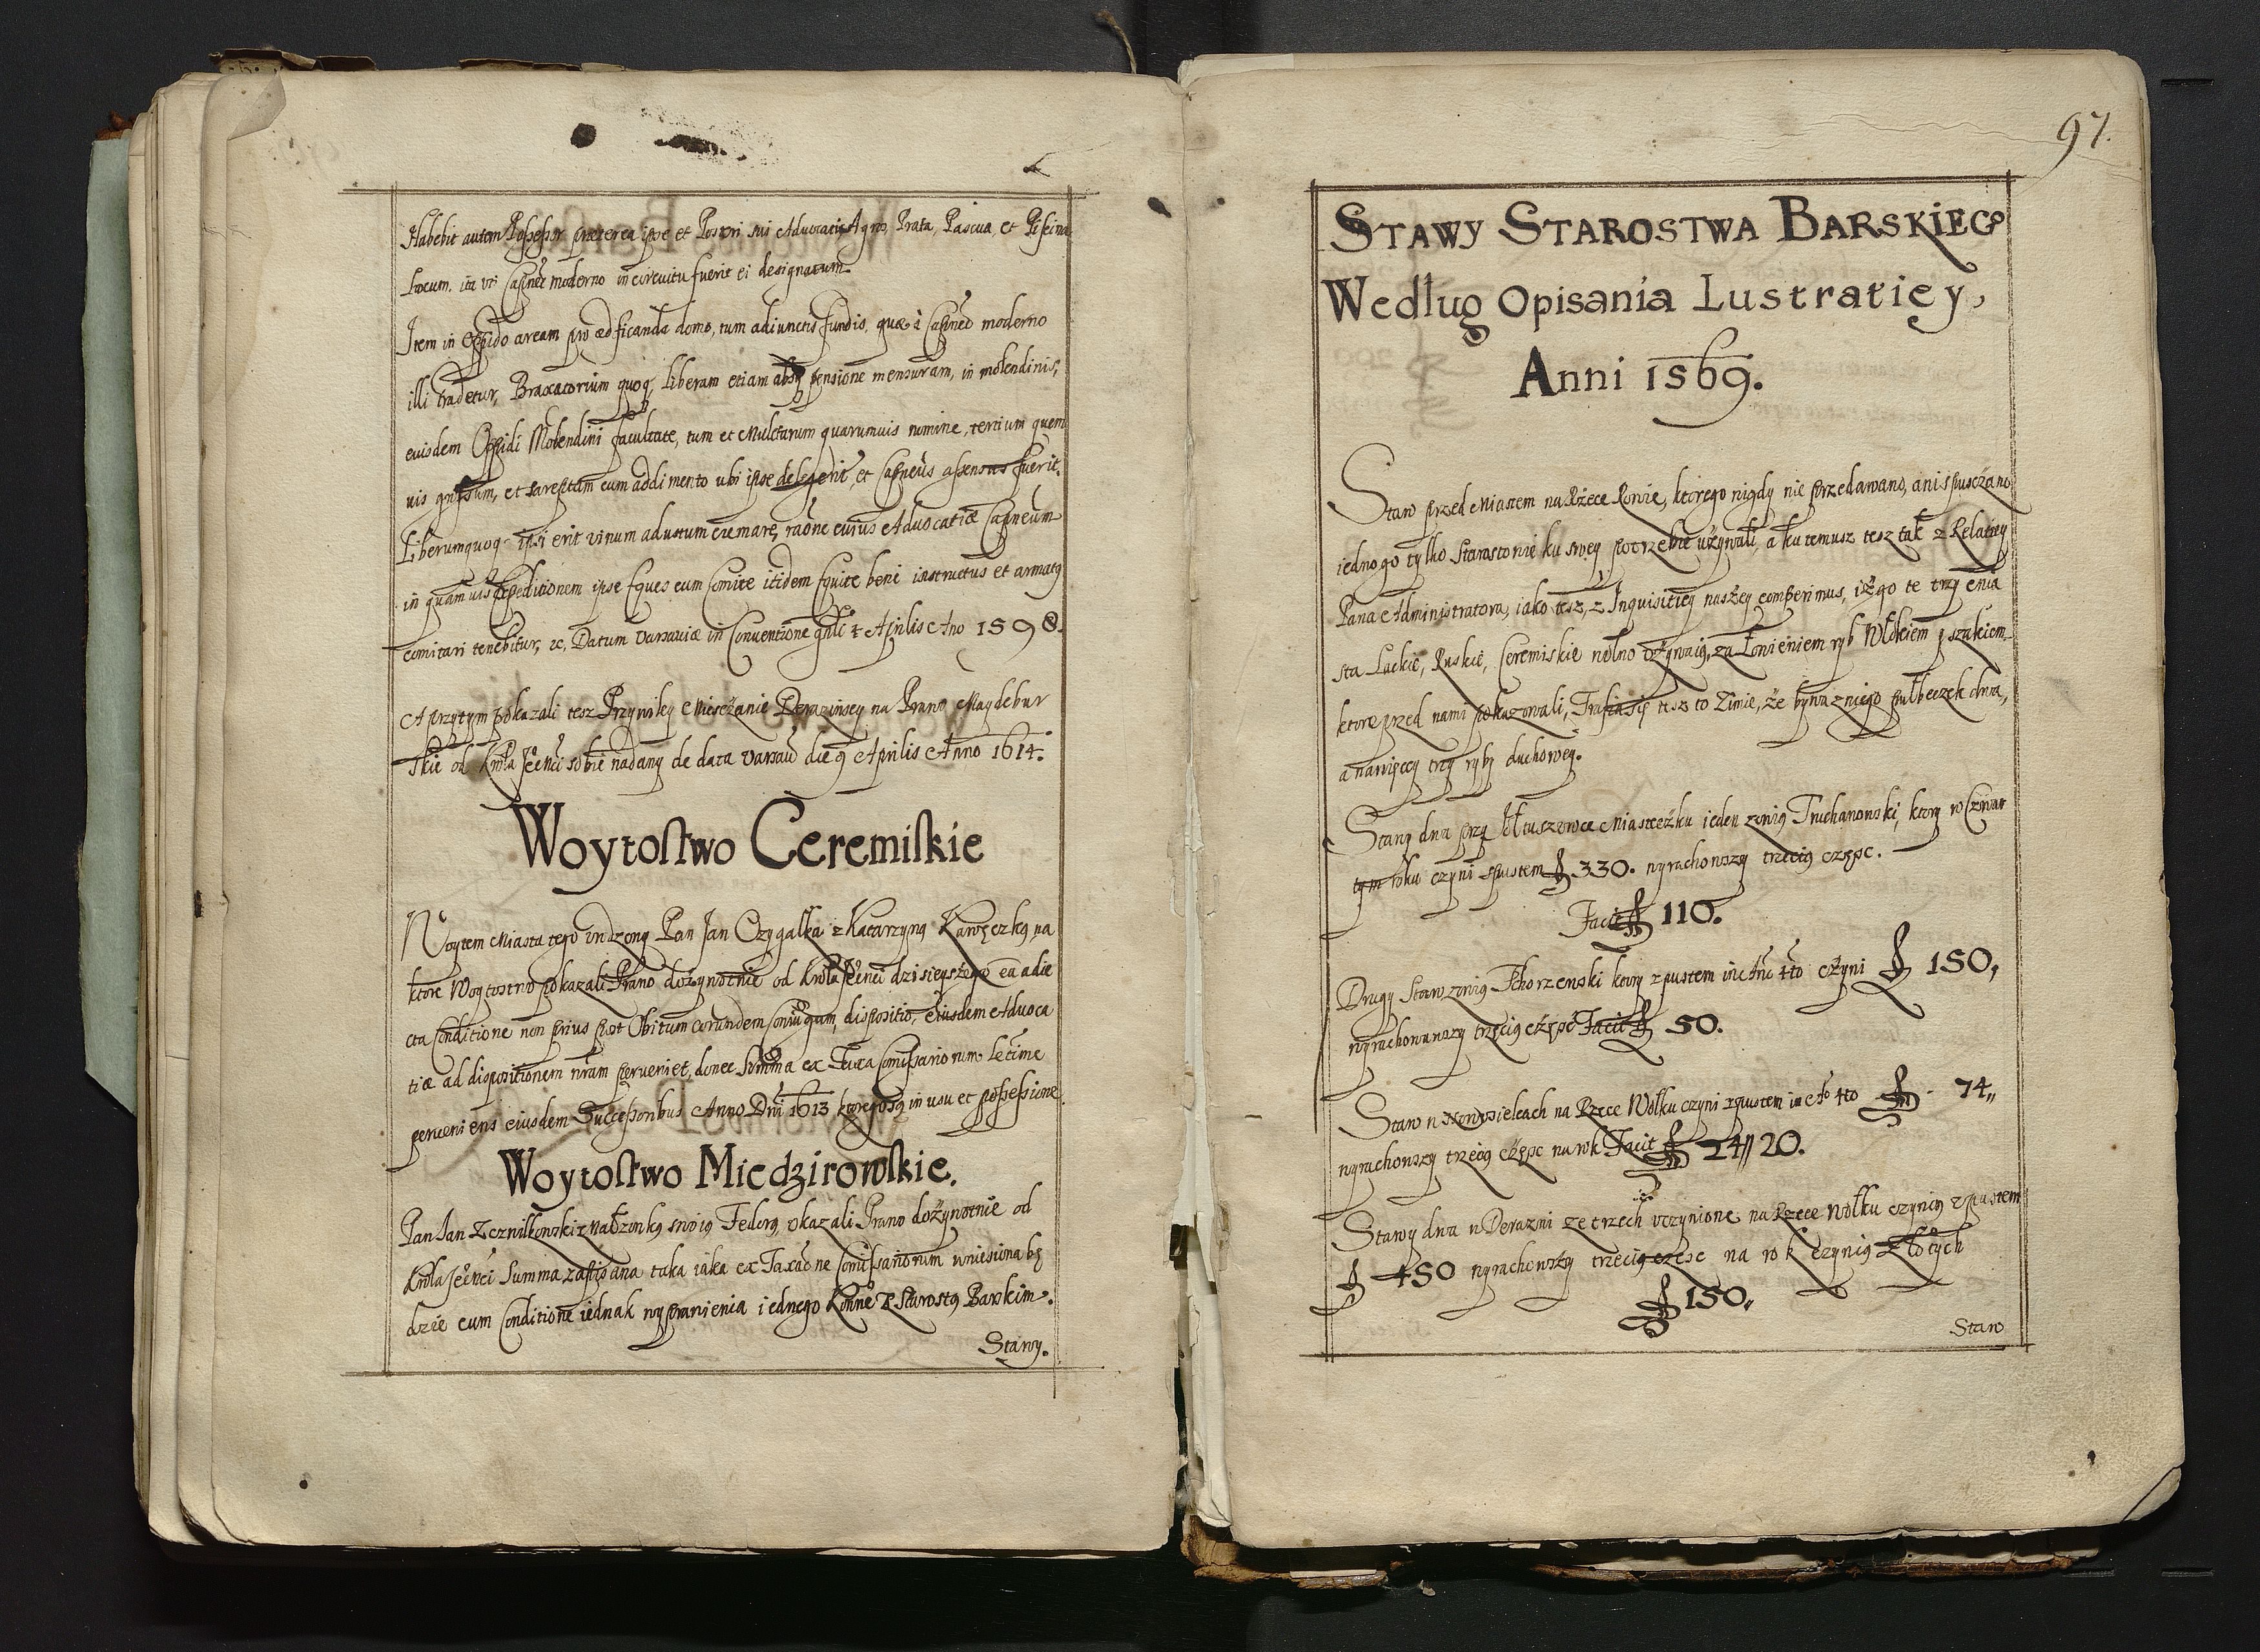 Habebit autem Possessor praeterea ipse et Posteri sui Advocatiae Agros, Prata, Pascua, et Piscinae
Locum, ita uti Capneus moderno in circuitu fuerit ei designatum.
Item in Oppido aream pro aedificanda domo, tum adiunctis fundis, quae à Capneo moderno
illi tradetur, Braxatorium quoq, liberam etiam absq pensione mensuram, in molendinis,
eiusdem Oppidi Molendini facultate, tum et Mulctarum quarumvis nomine, tertium quem
vis grossum, et sareptam cum addimento ubi ipse delegerit, et Capneus assensus fuerit.
Liberumquoq ipsi erit vinum adustum cremare, raone cuius Advocatiae Capneum
in quamvis Expeditionem ipse Eques cum Comite itidem Equite bene instructus et armatq
comitari tenebitur, &c, Datum Varsaviae in Conventione gnli 4 Aprilis Ano 1598.
A przytym pokazali tesz Przywiley Miesczanie Derazinscy na Prawo Maydebur
skie od Krola Je Mci sobie nadany de data Varsaw die 9 Aprilis Anno 1614.
Woytostwo Ceremiskie
Woytem Miasta tego urodzony Pan Jan Czygalka z Katarzyną Kawęczką, na
ktore Woytostwo pokazali Prawo dożywotnie od Krola Je Mci dzisieyszego ea adie
cta Conditione non prius post Obitum eorundem Coniugum, dispositio, eiusdem Advoca
tiae ad dispositionem nram perveniet, donec Summa ex Taxa Comissariorum letime
perveniens eiusdem Successoribus Anno Dni 1613 ktoregosą in usu et possessione.
Woytostwo Miedzirowskie.
Pan Jan z Małzonką swoią Fedorą, okazali Prawo dożywotnie od
Krola Je Mci Summa zapisana taka iaka ex Taxaone Comissariorum wniesiona bę
dzie cum Conditione iednak wyprawienia iednego Konne z Starostą Barskim.
Stawy.
97.
STAWY STAROSTWA BARSKIEGO
Według Opisania Lustratiey,
Anni 1569.
Staw przed Miastem na Rzece Rowie, ktorego nigdy nie przedawano, ani spusczano
iednogo tylko Starostowie ku swey potrzebie używali, a ku temusz tesz tak z Relatiey
Pana Administratora, iako tesz, z Inquisitiey naszey comperimus, iż go te trzy mia
sta Lackie, Ruskie, Ceremiskie wolno używaią, za Łowieniem ryb Włokiem y szakiem
ktore przed nami pokazowali, Trafia się tesz to Zimie, że bywa z niego pułbeczek dwa,
a nawięcey trzy ryby duchowey.
Stawy dwa przy Jołtuszowce Miasteczku ieden zowią Truchanowski, ktory w Czwar
tym roku czyni spustem f 330. wyrachowszy trzecią część.
Facit f 110.
Drugy Staw zowią Tchorzewski ktory zpustem in Ano 4to czyni f 150,
wyrachowawszy trzecią część Facit f 50.
Staw w Nowosielcach na Rzece Wołku czyni zpustem in Ao 4to f 74,,
wyrachowszy trzecią część na rok Facit f 24,, 20.
Stawy dwa w Derazni ze trzech uczynione na Rzece Wołku czynią zpustem
f 450 wyrachowszy trzecią część na rok czynią złotych
f 150,,
Staw